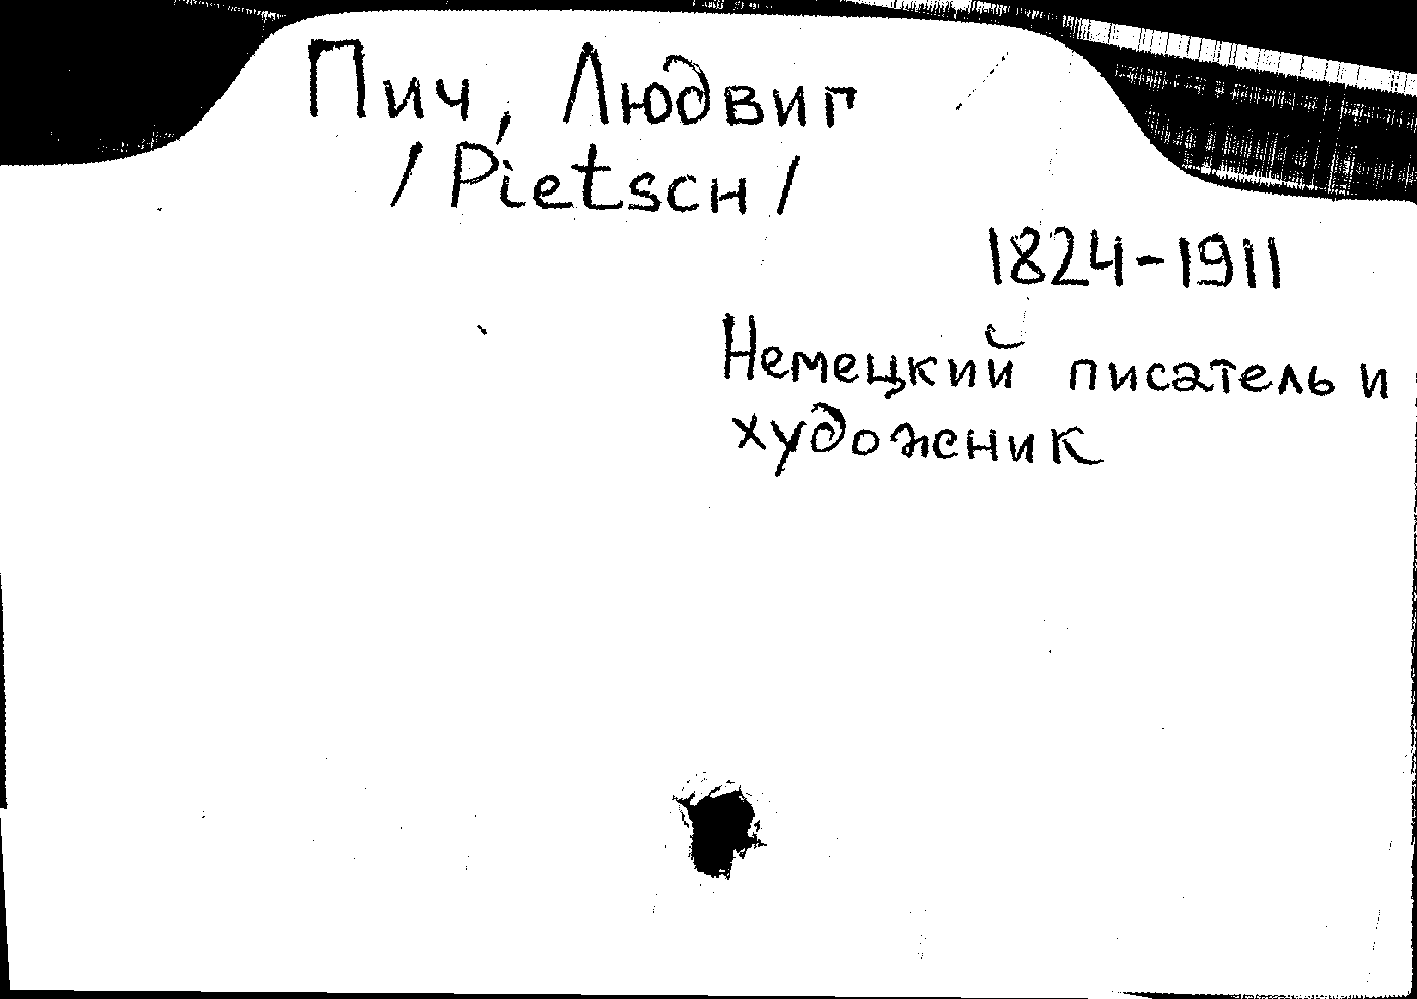 Пич, Людвиг
/ Pietsch /
1824-1911
Немецкий писатель и
художник